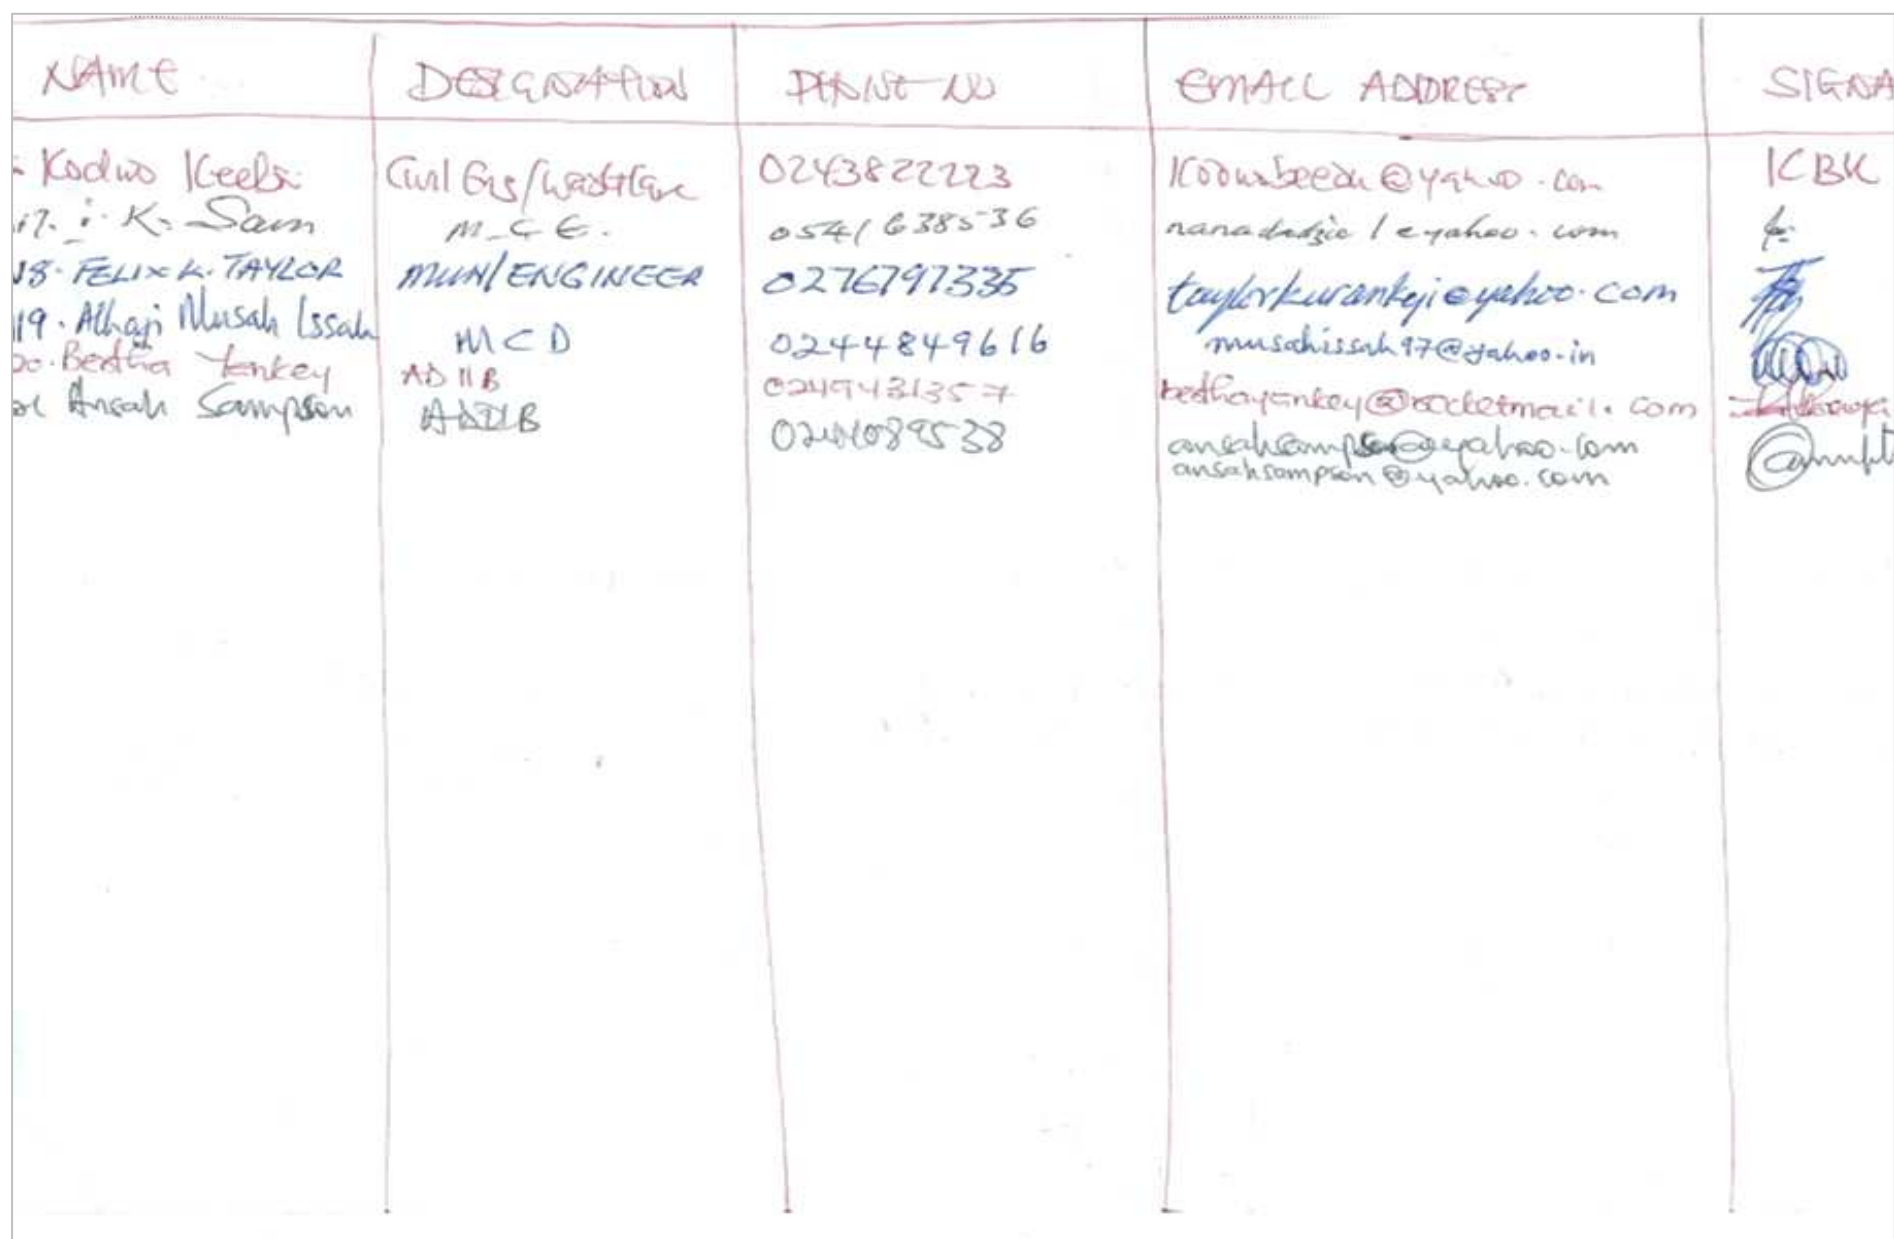 NAME DESIGNATION PHONE NO EMAIL ADDRESS SIGNA
Kodwo Civil Eng/ 0243822223 @yahoo.com KBK
17. K. Sam M.C.E. 0541638536 nanadadzie1@yahoo.com
18. FELIX K. TAYLOR MUN/ENGINEER 0276797335 taylorkurankyi@yahoo.com
19. Alhaji Musah Issah MCD 0244849616 musahissah97@yahoo.in
Bertha Yankey ADIIB 0249431357 berthayankey@rocketmail.com
Ansah Sampson ADIIB
ansahsampson@yahoo.com
ansahsampson@yahoo.com